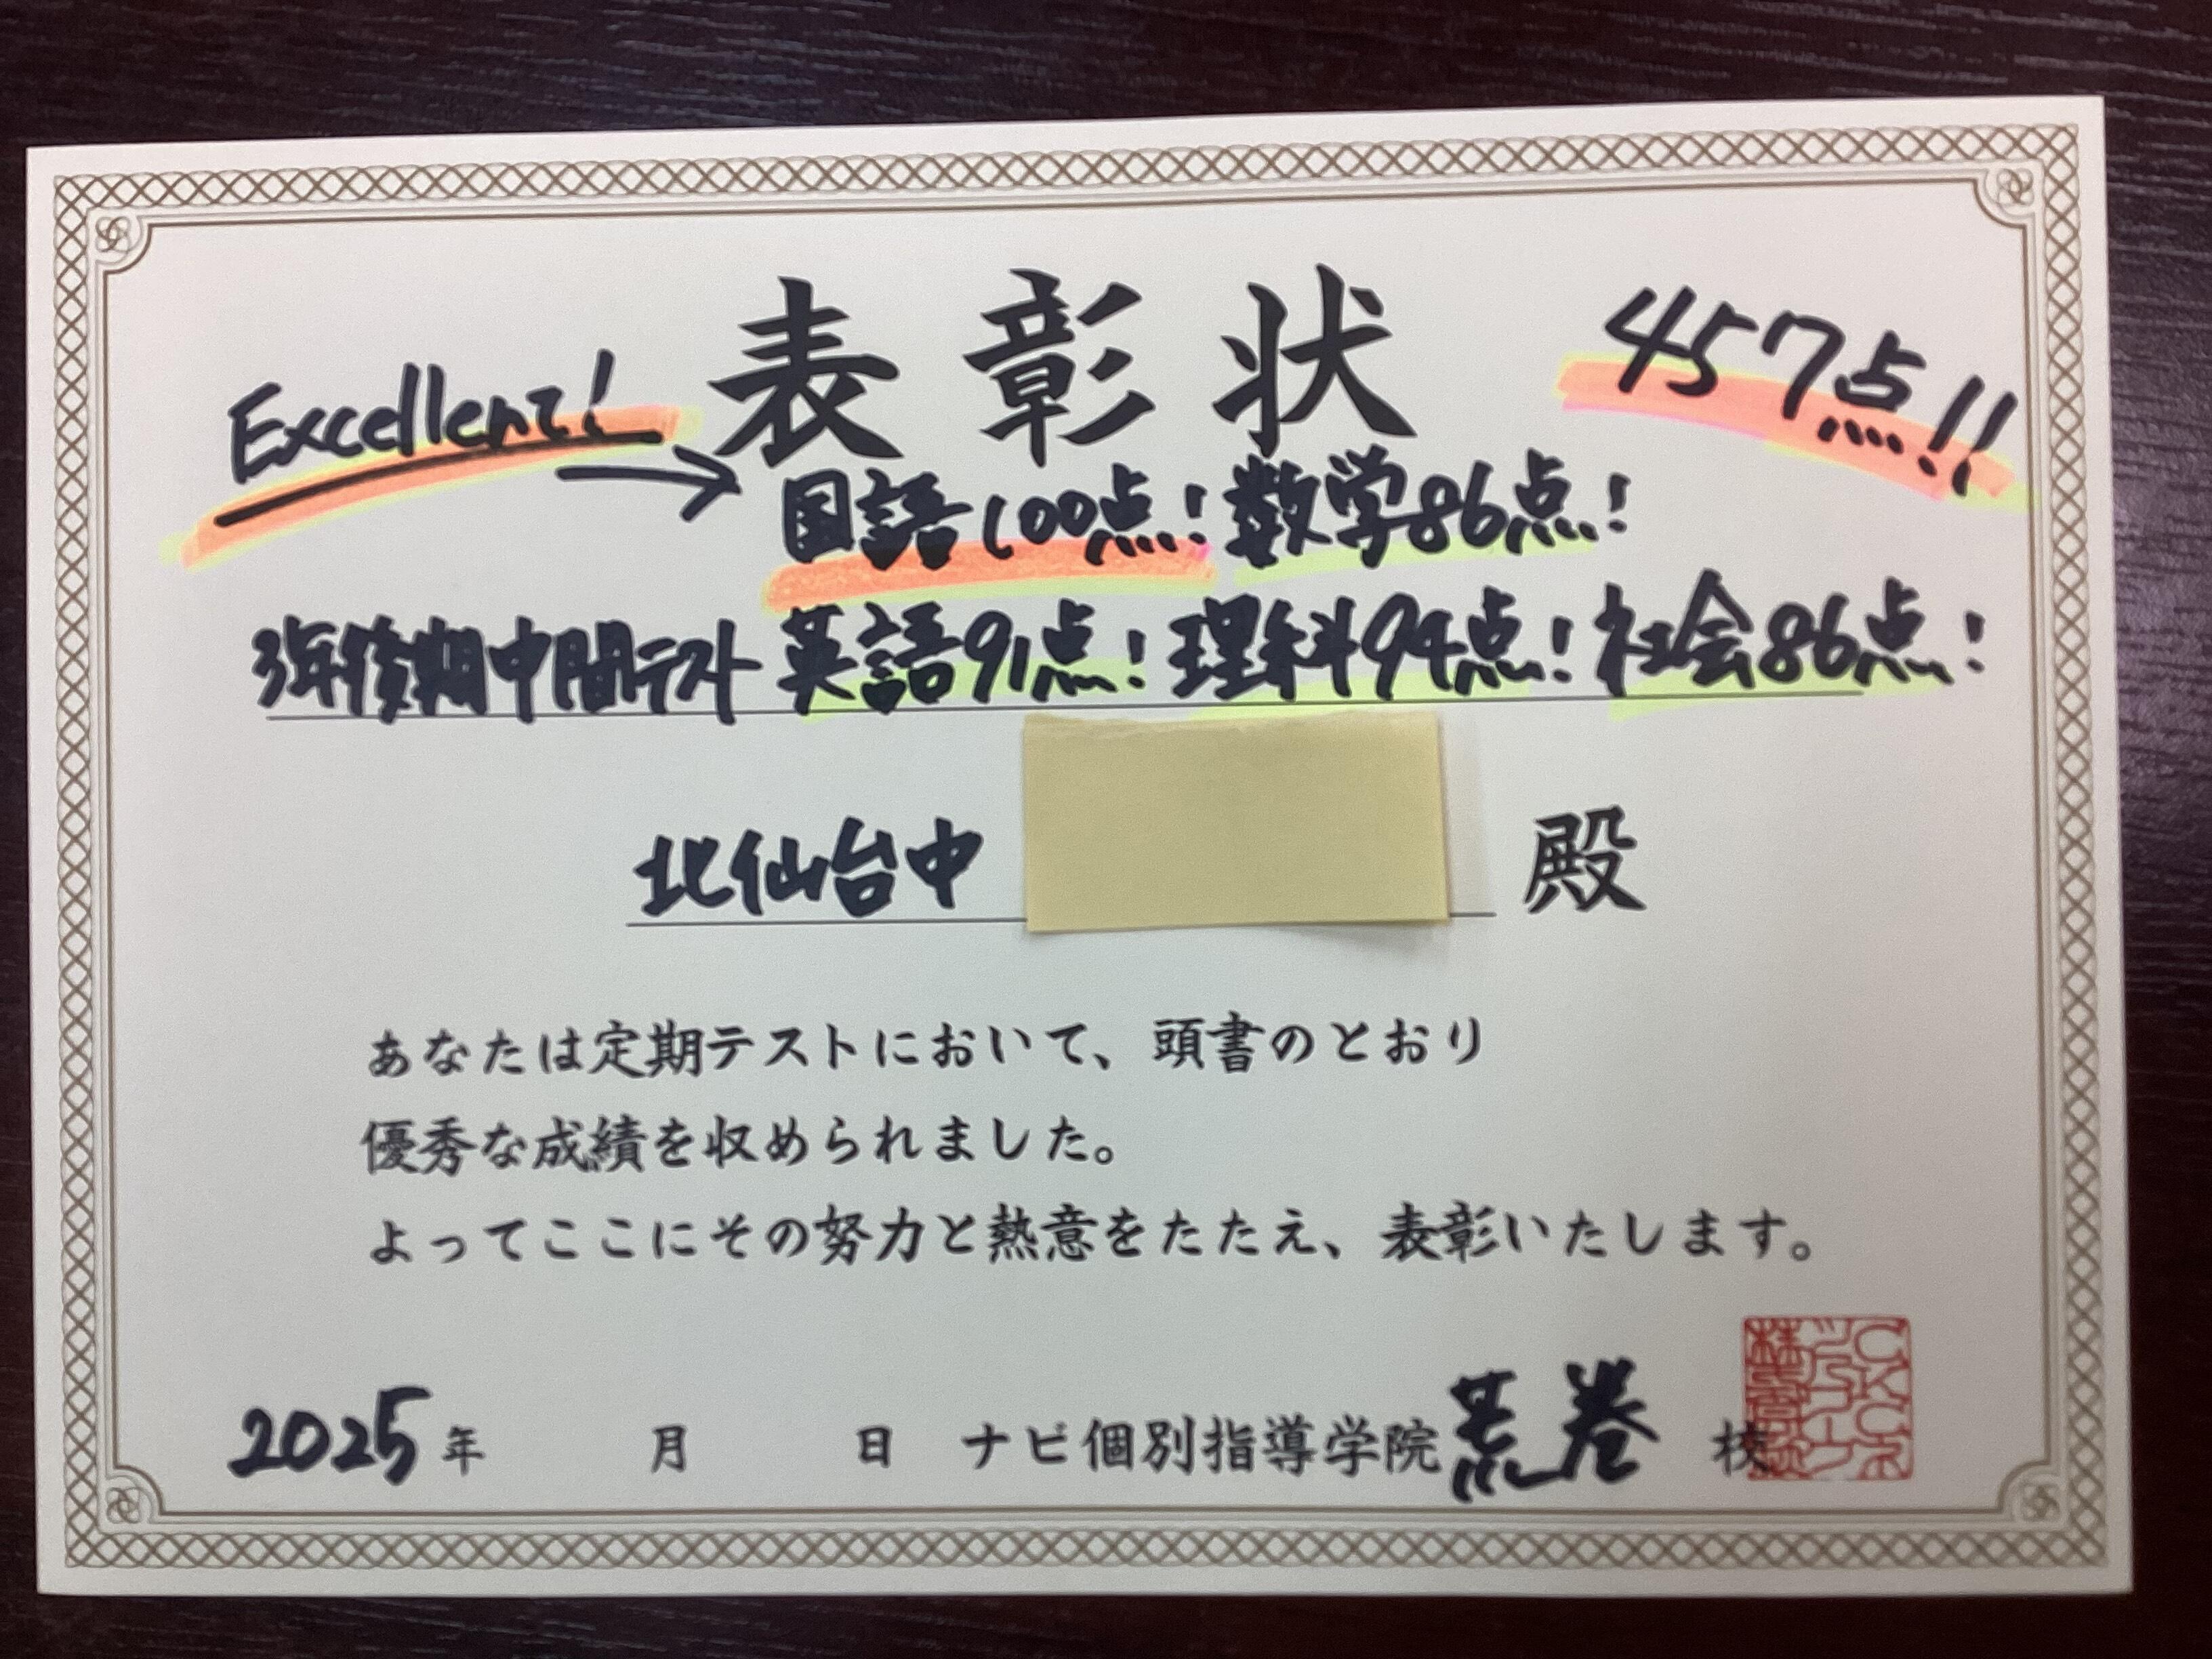 表彰状
457点!!
Excellent!
→ 国語100点! 数学86点!
3年後期中間テスト 英語91点! 理科94点! 社会86点!
北仙台中 殿
あなたは定期テストにおいて、頭書のとおり
優秀な成績を収められました。
よってここにその努力と熱意をたたえ、表彰いたします。
2025年 月 日 ナビ個別指導学院 荒巻 校